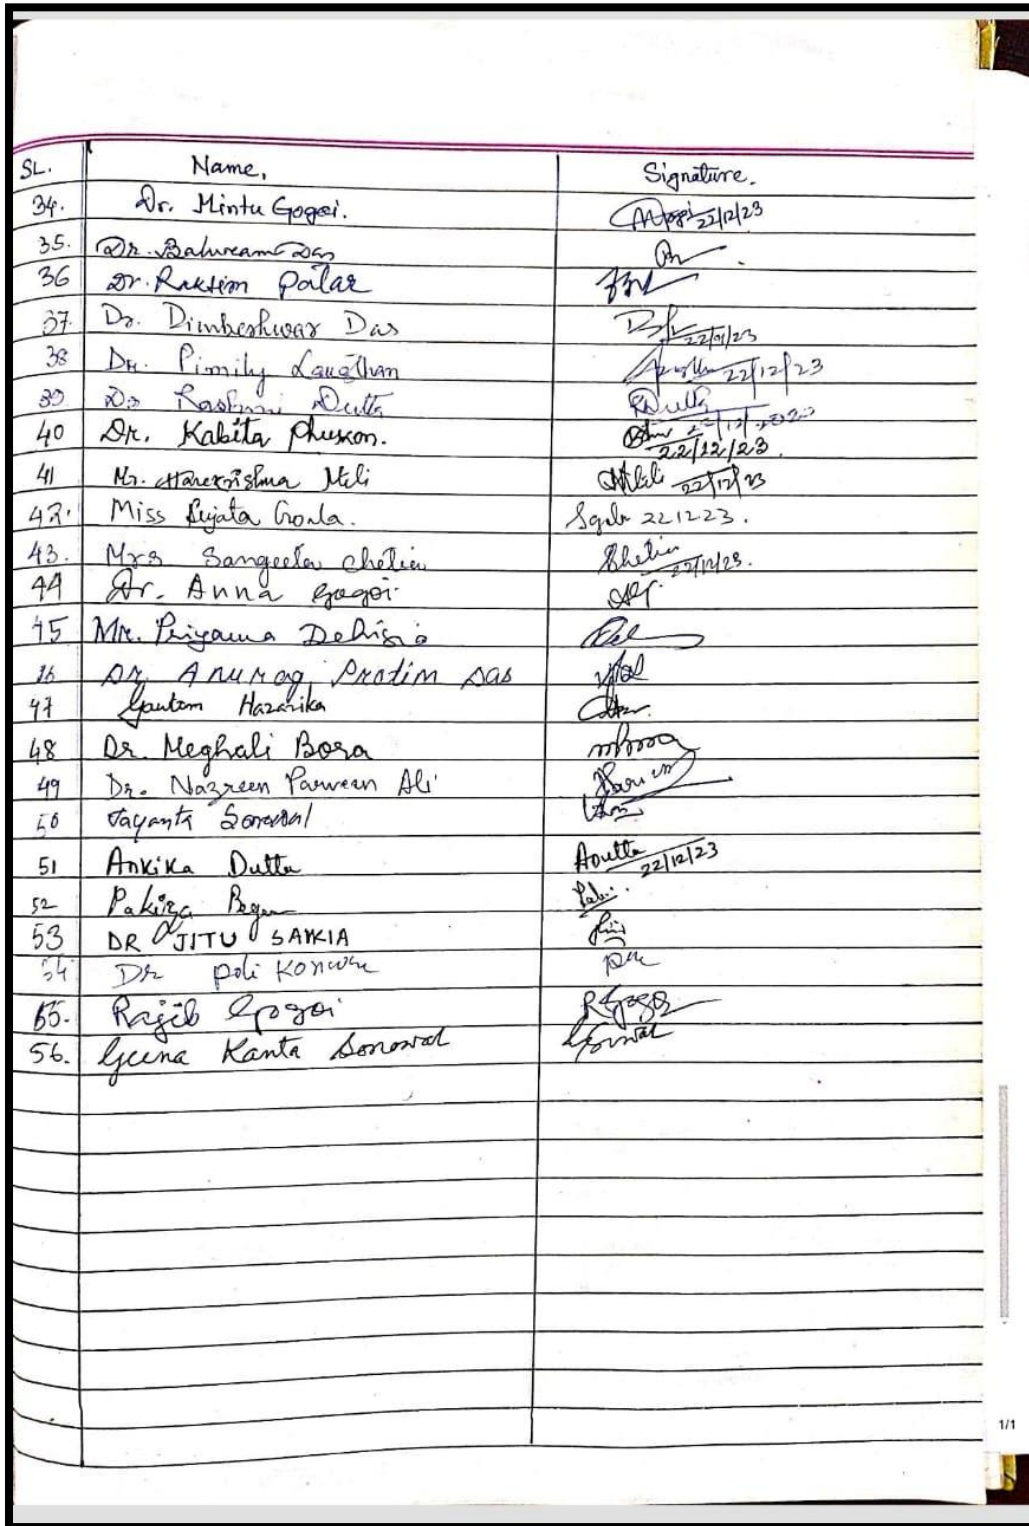 SL. Name, Signature.
34. Dr. Mintu Gogoi. 22/12/23
35. Dr. Baluream Das
36 Dr. Raktim Patar
37. Dr. Dimbeshwar Das
38 Dr. Pimily Langthm 22/12/23
39 Dr Rashmi Dutta RDutta 22/12/2023
40 Dr. Kabita Phukon. 22/12/23.
41 Mr. Harekrishna Mili 22/12/23
42. Miss Sujata Goala. 221223.
43. Mrs Sangeeta Chetia Chetia 22/12/23.
44 Dr. Anna Gogoi.
45 Mr. Priyama Dehingia
46 Dr Anurag Protim Das
47 Gautam Hazarika
48 Dr. Meghali Bora
49 Dr. Nazreen Parween Ali
50 Jayanta Sonowal
51 Ankika Dutta ADutta 22/12/23
52 Pakiza Begum
53 DR JITU SAIKIA
54 Dr poli Konwar
55. Rajib Gogoi RGogoi
56. Guna Kanta Sonowal
1/1